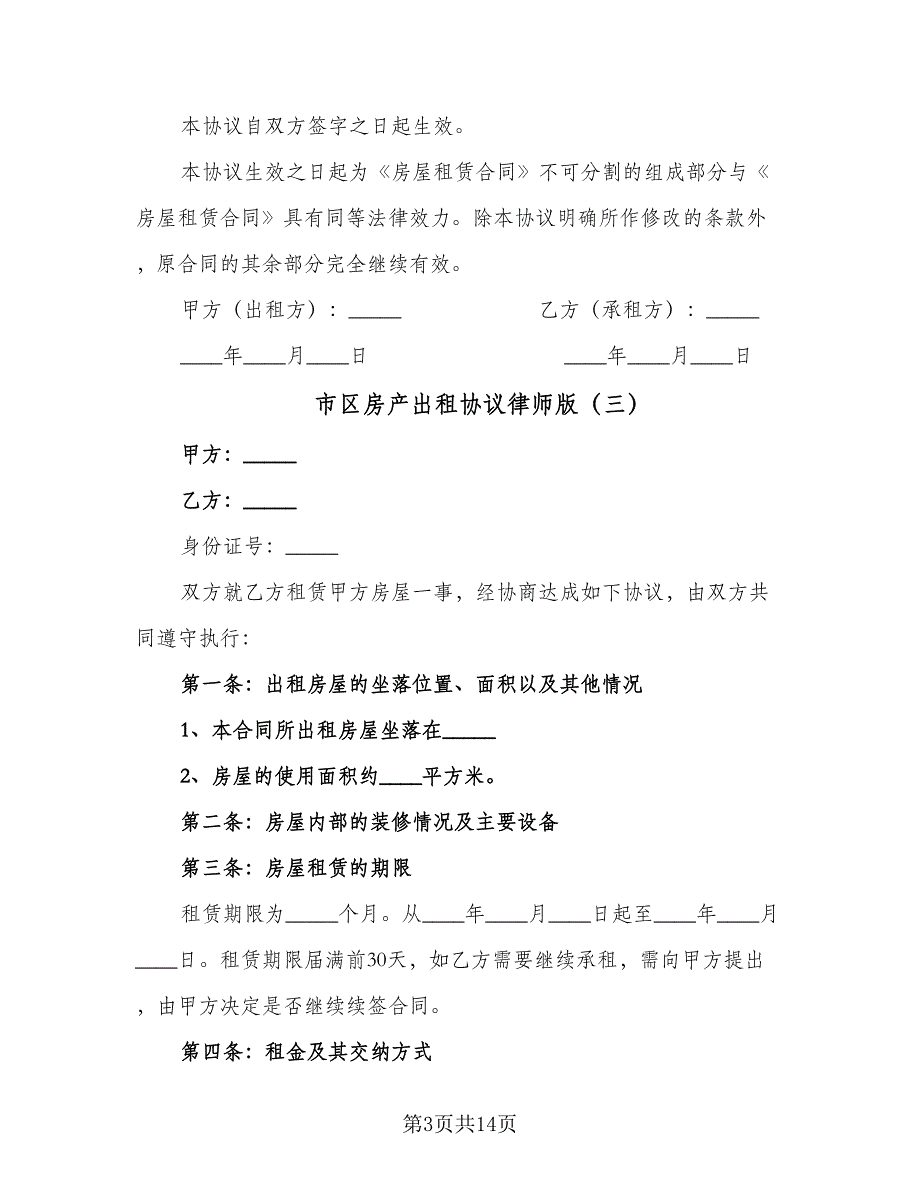 本协议自双方签字之日起生效。
本协议生效之日起为《房屋租赁合同》不可分割的组成部分与《
房屋租赁合同》具有同等法律效力。除本协议明确所作修改的条款外
，原合同的其余部分完全继续有效。
甲方（出租方）：_____ 乙方（承租方）：_____
____年____月____日 ____年____月____日
市区房产出租协议律师版（三）
甲方：_____
乙方：_____
身份证号：_____
双方就乙方租赁甲方房屋一事，经协商达成如下协议，由双方共
同遵守执行：
第一条：出租房屋的坐落位置、面积以及其他情况
1、本合同所出租房屋坐落在_____
2、房屋的使用面积约____平方米。
第二条：房屋内部的装修情况及主要设备
第三条：房屋租赁的期限
租赁期限为_____个月。从____年____月____日起至____年____月
____日。租赁期限届满前30天，如乙方需要继续承租，需向甲方提出
，由甲方决定是否继续续签合同。
第四条：租金及其交纳方式
第3页共14页